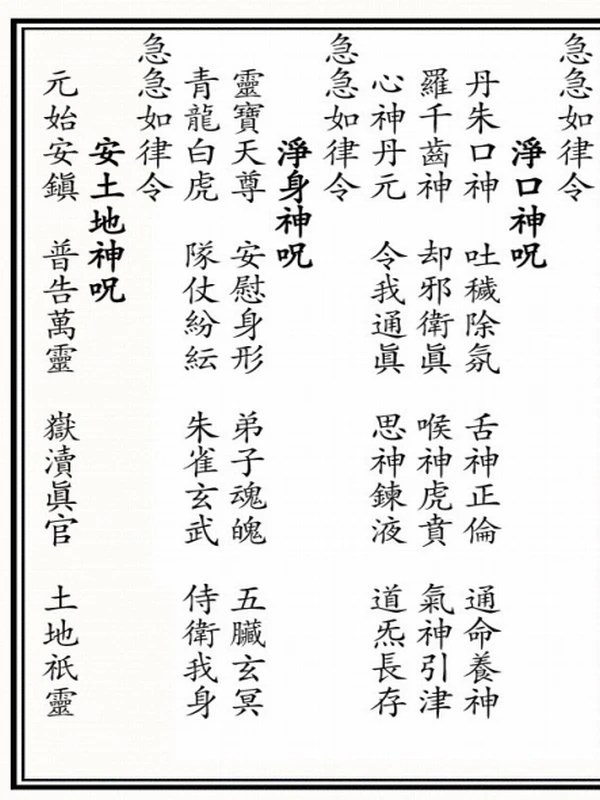 急急如律令
淨口神呪
丹朱口神 吐穢除氛 舌神正倫 通命養神
羅千齒神 却邪衛眞 喉神虎賁 氣神引津
心神丹元 令我通眞 思神鍊液 道炁長存
急急如律令
淨身神呪
靈寶天尊 安慰身形 弟子魂魄 五臟玄冥
青龍白虎 隊仗紛紜 朱雀玄武 侍衛我身
急急如律令
安土地神呪
元始安鎭 普告萬靈 嶽瀆眞官 土地祇靈